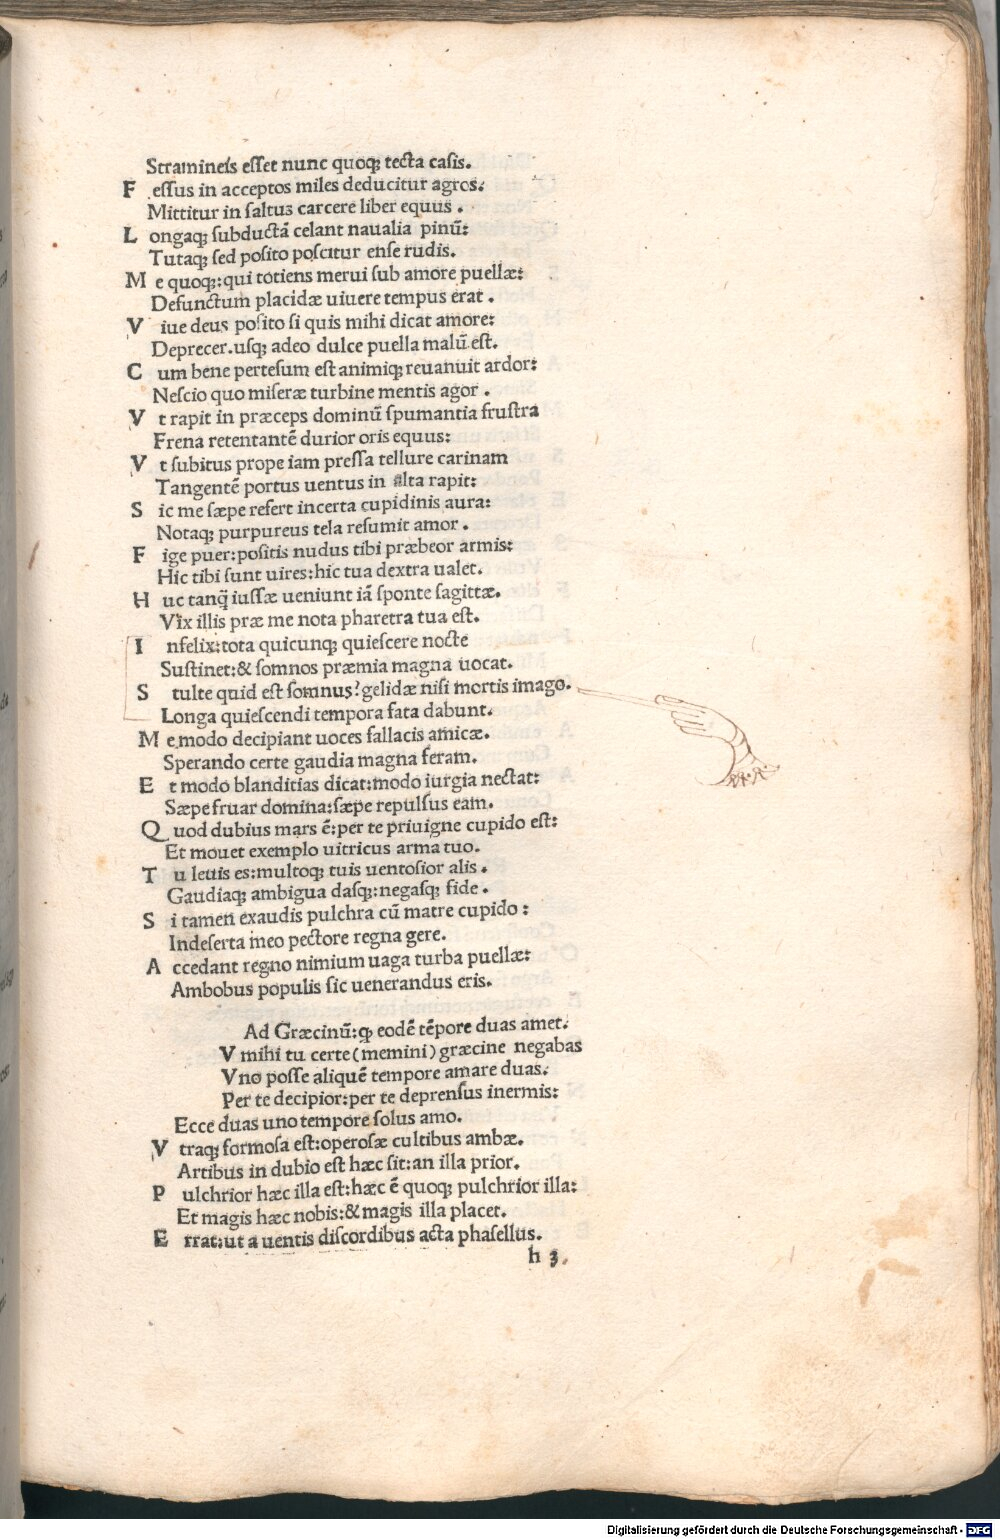 Stramineis esset nunc quoqꝫ tecta casis.
F essus in acceptos miles deducitur agros:
Mittitur in saltus carcere liber equus .
L ongaqꝫ subductã celant naualia pinũ:
Tutaqꝫ sed posito poscitur ense rudis.
M e quoqꝫ:qui totiens merui sub amore puellæ:
Defunctum placidæ uiuere tempus erat .
V iue deus posito si quis mihi dicat amore:
Deprecer.usqꝫ adeo dulce puella malũ est.
C um bene pertesum est animiqꝫ reuanuit ardor:
Nescio quo miseræ turbine mentis agor .
V t rapit in præceps dominũ spumantia frustra
Frena retentantẽ durior oris equus:
V t subitus prope iam pressa tellure carinam
Tangentẽ portus uentus in alta rapit:
S ic me sæpe refert incerta cupidinis aura:
Notaqꝫ purpureus tela resumit amor .
F ige puer:positis nudus tibi præbeor armis:
Hic tibi sunt uires:hic tua dextra ualet.
H uc tanq̃ iussæ ueniunt iã sponte sagittæ.
Vix illis præ me nota pharetra tua est.
I nfelix:tota quicunqꝫ quiescere nocte
Sustinet:& somnos præmia magna uocat.
S tulte quid est somnus?gelidæ nisi mortis imago.
Longa quiescendi tempora fata dabunt.
M e modo decipiant uoces fallacis amicæ.
Sperando certe gaudia magna feram.
E t modo blanditias dicat:modo iurgia nectat:
Sæpe fruar domina:sæpe repulsus eam.
Q uod dubius mars ẽ:per te priuigne cupido est:
Et mouet exemplo uitricus arma tuo.
T u leuis es:multoqꝫ tuis uentosior alis .
Gaudiaqꝫ ambigua dasqꝫ:negasqꝫ fide .
S i tamen exaudis pulchra cũ matre cupido :
Indeserta meo pectore regna gere.
A ccedant regno nimium uaga turba puellæ:
Ambobus populis sic uenerandus eris.
Ad Græcinũ:qꝫ eodẽ tẽpore duas amet.
V mihi tu certe (memini) græcine negabas
Vno posse aliquẽ tempore amare duas.
Per te decipior:per te deprensus inermis:
Ecce duas uno tempore solus amo.
V traqꝫ formosa est:operosæ cultibus ambæ.
Artibus in dubio est hæc sit:an illa prior.
P ulchrior hæc illa est:hæc ẽ quoqꝫ pulchrior illa:
Et magis hæc nobis:& magis illa placet.
E rrat:ut a uentis discordibus acta phasellus.
h 3.
Digitalisierung gefördert durch die Deutsche Forschungsgemeinschaft - DFG